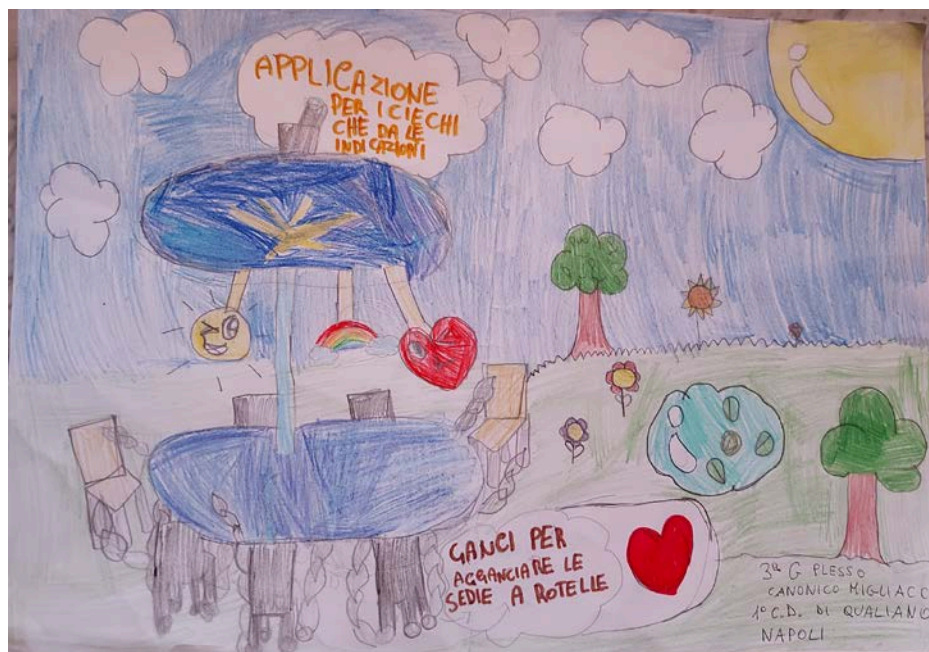 APPLICAZIONE
PER I CIECHI
CHE DA LE
INDICAZIONI
GANCI PER
AGGANCIARE LE
SEDIE A ROTELLE
3ª G PLESSO
CANONICO MIGLIACC
1° C.D. DI QUALIANO
NAPOLI